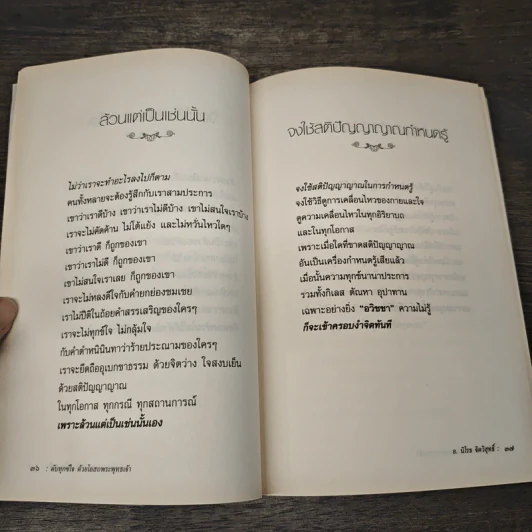 ล้วนแต่เป็นเช่นนั้น
ไม่ว่าเราจะทำอะไรลงไปก็ตาม
คนทั้งหลายจะต้องรู้สึกกับเราสามประการ
เขาว่าเราดีบ้าง เขาว่าเราไม่ดีบ้าง เขาไม่สนใจเราบ้าง
เราจะไม่คัดค้าน ไม่โต้แย้ง และไม่หวั่นไหวใดๆ
เขาว่าเราดี ก็ถูกของเขา
เขาว่าเราไม่ดี ก็ถูกของเขา
เขาไม่สนใจเราเลย ก็ถูกของเขา
เราจะไม่หลงดีใจกับคำยกย่องชมเชย
เราไม่ปีติในถ้อยคำสรรเสริญของใครๆ
เราจะไม่ทุกข์ใจ ไม่กลุ้มใจ
กับคำตำหนินินทาว่าร้ายประณามของใครๆ
เราจะยึดถืออุเบกขาธรรม ด้วยจิตว่าง ใจสงบเย็น
ด้วยสติปัญญาญาณ
ในทุกโอกาส ทุกกรณี ทุกสถานการณ์
เพราะล้วนแต่เป็นเช่นนั้นเอง
๓๖ : ดับทุกข์ใจ ด้วยโอสถพระพุทธเจ้า
จงใช้สติปัญญาญาณกำหนดรู้
จงใช้สติปัญญาญาณในการกำหนดรู้
จงใช้วิธีดูการเคลื่อนไหวของกายและใจ
ดูความเคลื่อนไหวในทุกอิริยาบถ
และในทุกโอกาส
เพราะเมื่อใดที่ขาดสติปัญญาญาณ
อันเป็นเครื่องกำหนดรู้เสียแล้ว
เมื่อนั้นความทุกข์นานาประการ
รวมทั้งกิเลส ตัณหา อุปาทาน
เฉพาะอย่างยิ่ง "อวิชชา" ความไม่รู้
ก็จะเข้าครอบงำจิตทันที
อ. นิโรธ จิตวิสุทธิ์ : ๓๗